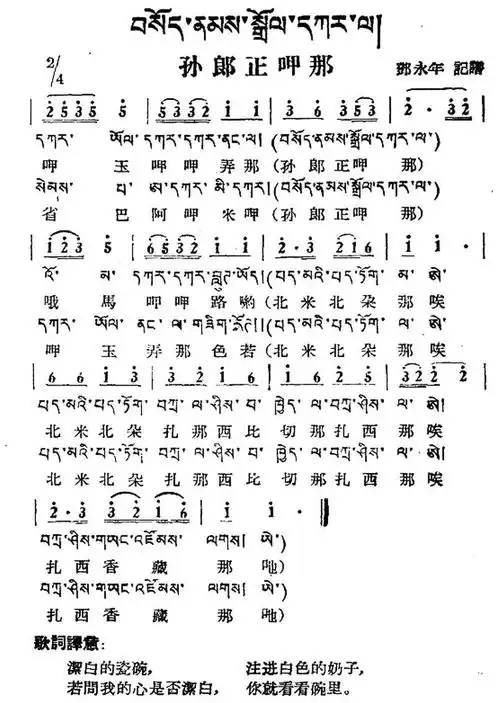 བསོད་ནམས་སྒྲོལ་དཀར་ལ།
孙郎正呷那
2/4
鄧永年 記譜
| 2 5 3 5 5 | 5 3 3 2 1 1 | 3 6 3 5 3 5 | 2 · 3 2 |
དཀར་ ཡོལ་དཀར་དཀར་ནང་ལ། (བསོད་ནམས་སྒྲོལ་དཀར་ལ་)
呷 玉 呷 呷 弄 那 (孙郎正呷 那)
སེམས་ པ་ ཨ་དཀར་མི་དཀར། (བསོད་ནམས་སྒྲོལ་དཀར་ལ་)
省 巴 阿 呷 米 呷 (孙郎正呷 那)
| 1 2 3 5 | 6 5 3 2 1 1 | 2 · 3 2 1 6 | 1 · 2 |
འོ་ མ་ དཀར་དཀར་བླུ
ག་ཡོད། (པད་མའི་པད་ཏོག་ མ་ ཨེ
哦 馬 呷 呷 路 喲 (北 米 北 朵 那 唉
དཀར་ ཡོལ་ ནང་ ལ་ གཟིག་རོ
གས། (པད་མའི་པད་ཏོག་ ལ་ ཨེ
呷 玉 弄 那 色 若 (北 米 北 朵 那 唉
6 6 1 3 | 2 1 6 1 | 1 6 2 5 | 3 2 2 2 |
པད་མའི་པད་ཏོག་ བཀྲ་ ལ་ཤིས་ བ་ ཁྱེད་ ལ་བཀྲ་ཤིས་ ལ་ ཨེ།
北 米 北 朵 扎 那 西 比 切 那 扎 西 那 唉
པད་མའི་པད་ཏོག་ བཀྲ་ ལ་ཤིས་ བ་ ཁྱེད་ ལ་བཀྲ་ཤིས་ ལ་ ཨེ།
北 米 北 朵 扎 那 西 比 切 那 扎 西 那 唉
| 2 · 3 2 1 6 | 1 1 ||
བཀྲ་ཤིས་གཡང་འཛོམས་ ལགས། ཨེ་)
扎 西 香 藏 那 吔)
བཀྲ་ཤིས་གཡང་འཛོམས་ ལགས། ཨེ་)
扎 西 香 藏 那 吔)
歌詞譯意:
潔白的瓷碗, 注进白色的奶子,
若問我的心是否潔白, 你就看看碗里。